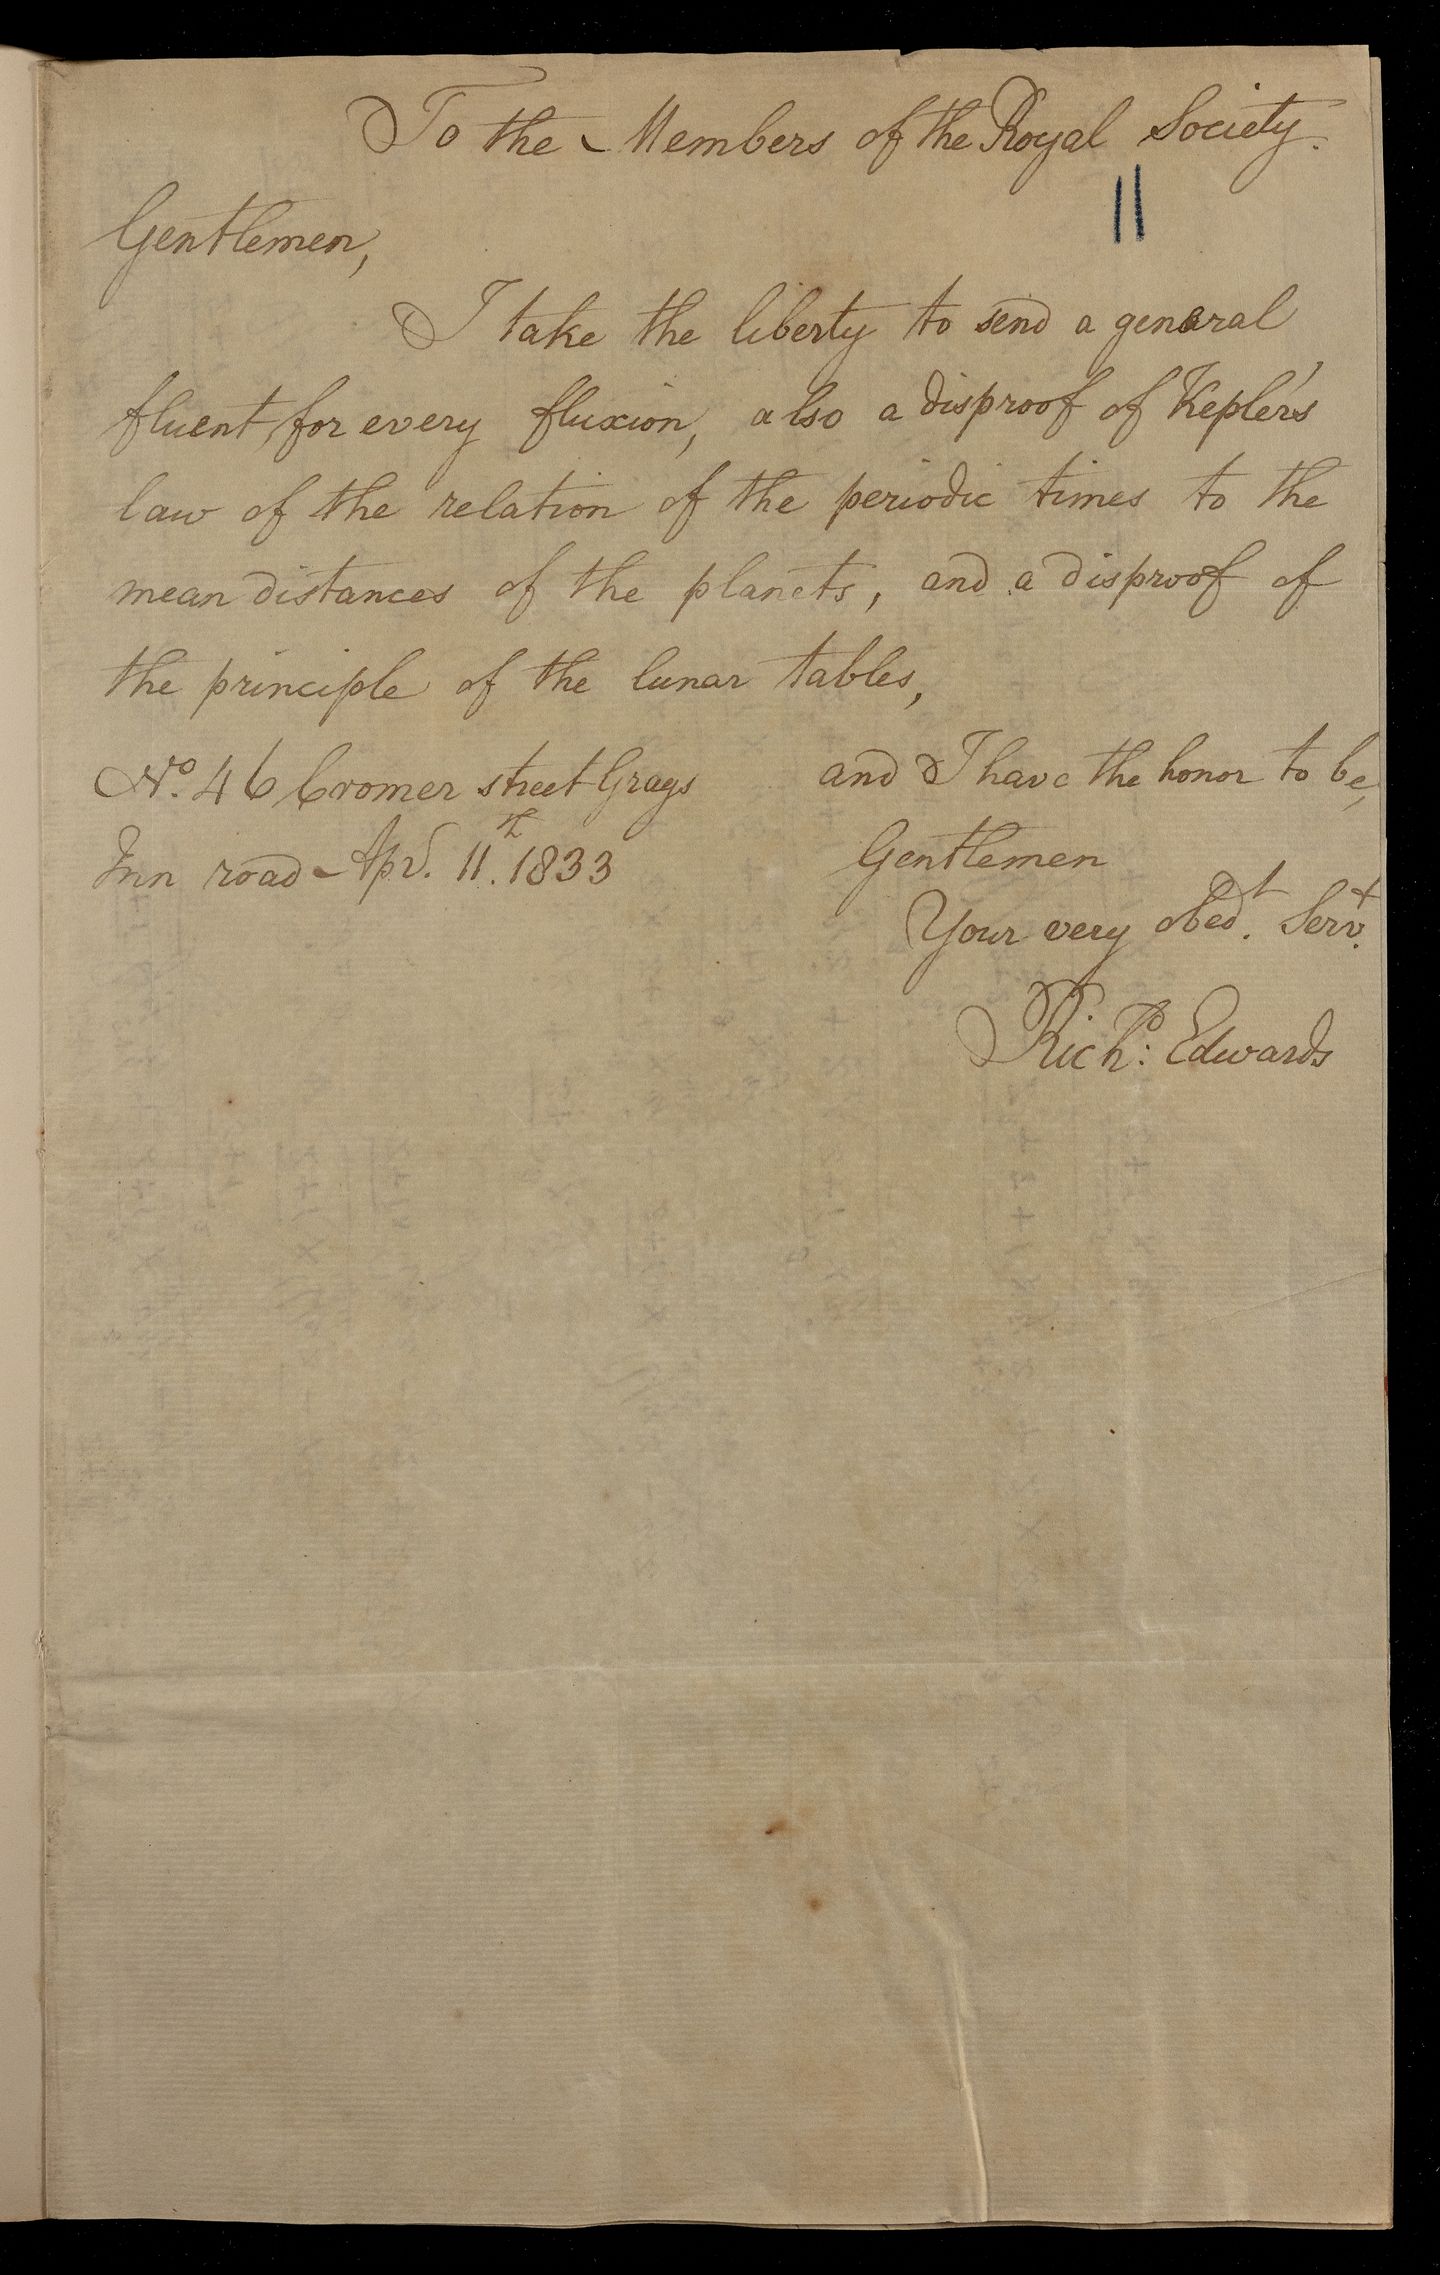 To the Members of the Royal Society.
11
Gentlemen,
I take the liberty to send a general
fluent, for every fluxion, also a disproof of Kepler's
law of the relation of the periodic times to the
mean distances of the planets, and a disproof of
the principle of the lunar tables,
and I have the honor to be,
No. 46 Cromer street Grays
Inn road Apl. 11th. 1833
Gentlemen
Your very obedt. Servt.
Richd: Edwards